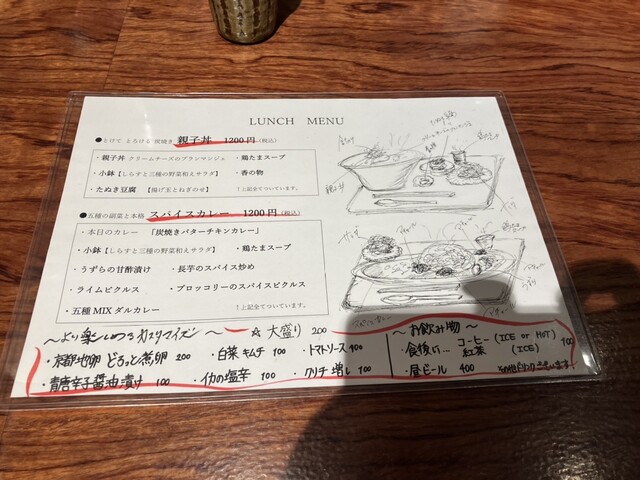 LUNCH MENU
●とけて とろける 炭焼き 親子丼 1200円(税込)
・親子丼 クリームチーズのブランマンジェ ・鶏たまスープ
・小鉢【しらすと三種の野菜和えサラダ】 ・香の物
・たぬき豆腐 【揚げ玉とねぎのせ】 ↑上記全てついています。
●五種の副菜と本格 スパイスカレー 1200円(税込)
・本日のカレー 「炭焼きバターチキンカレー」
・小鉢【しらすと三種の野菜和えサラダ】 ・鶏たまスープ
・うずらの甘酢漬け ・長芋のスパイス炒め
・ライムピクルス ・ブロッコリーのスパイスピクルス
・五種MIXダルカレー ↑上記全てついています。
〜より楽しめるカスタマイズ〜 ☆大盛り 200
・京都地卵 どろっと煮卵 200 ・白菜キムチ 100 ・トマトソース 400
・青唐辛子醤油漬け 100 ・イカの塩辛 100 ・クリチ増し 100
〜お飲み物〜
・食後に… コーヒー (ICE or HOT) 100
紅茶 (ICE)
・昼ビール 400